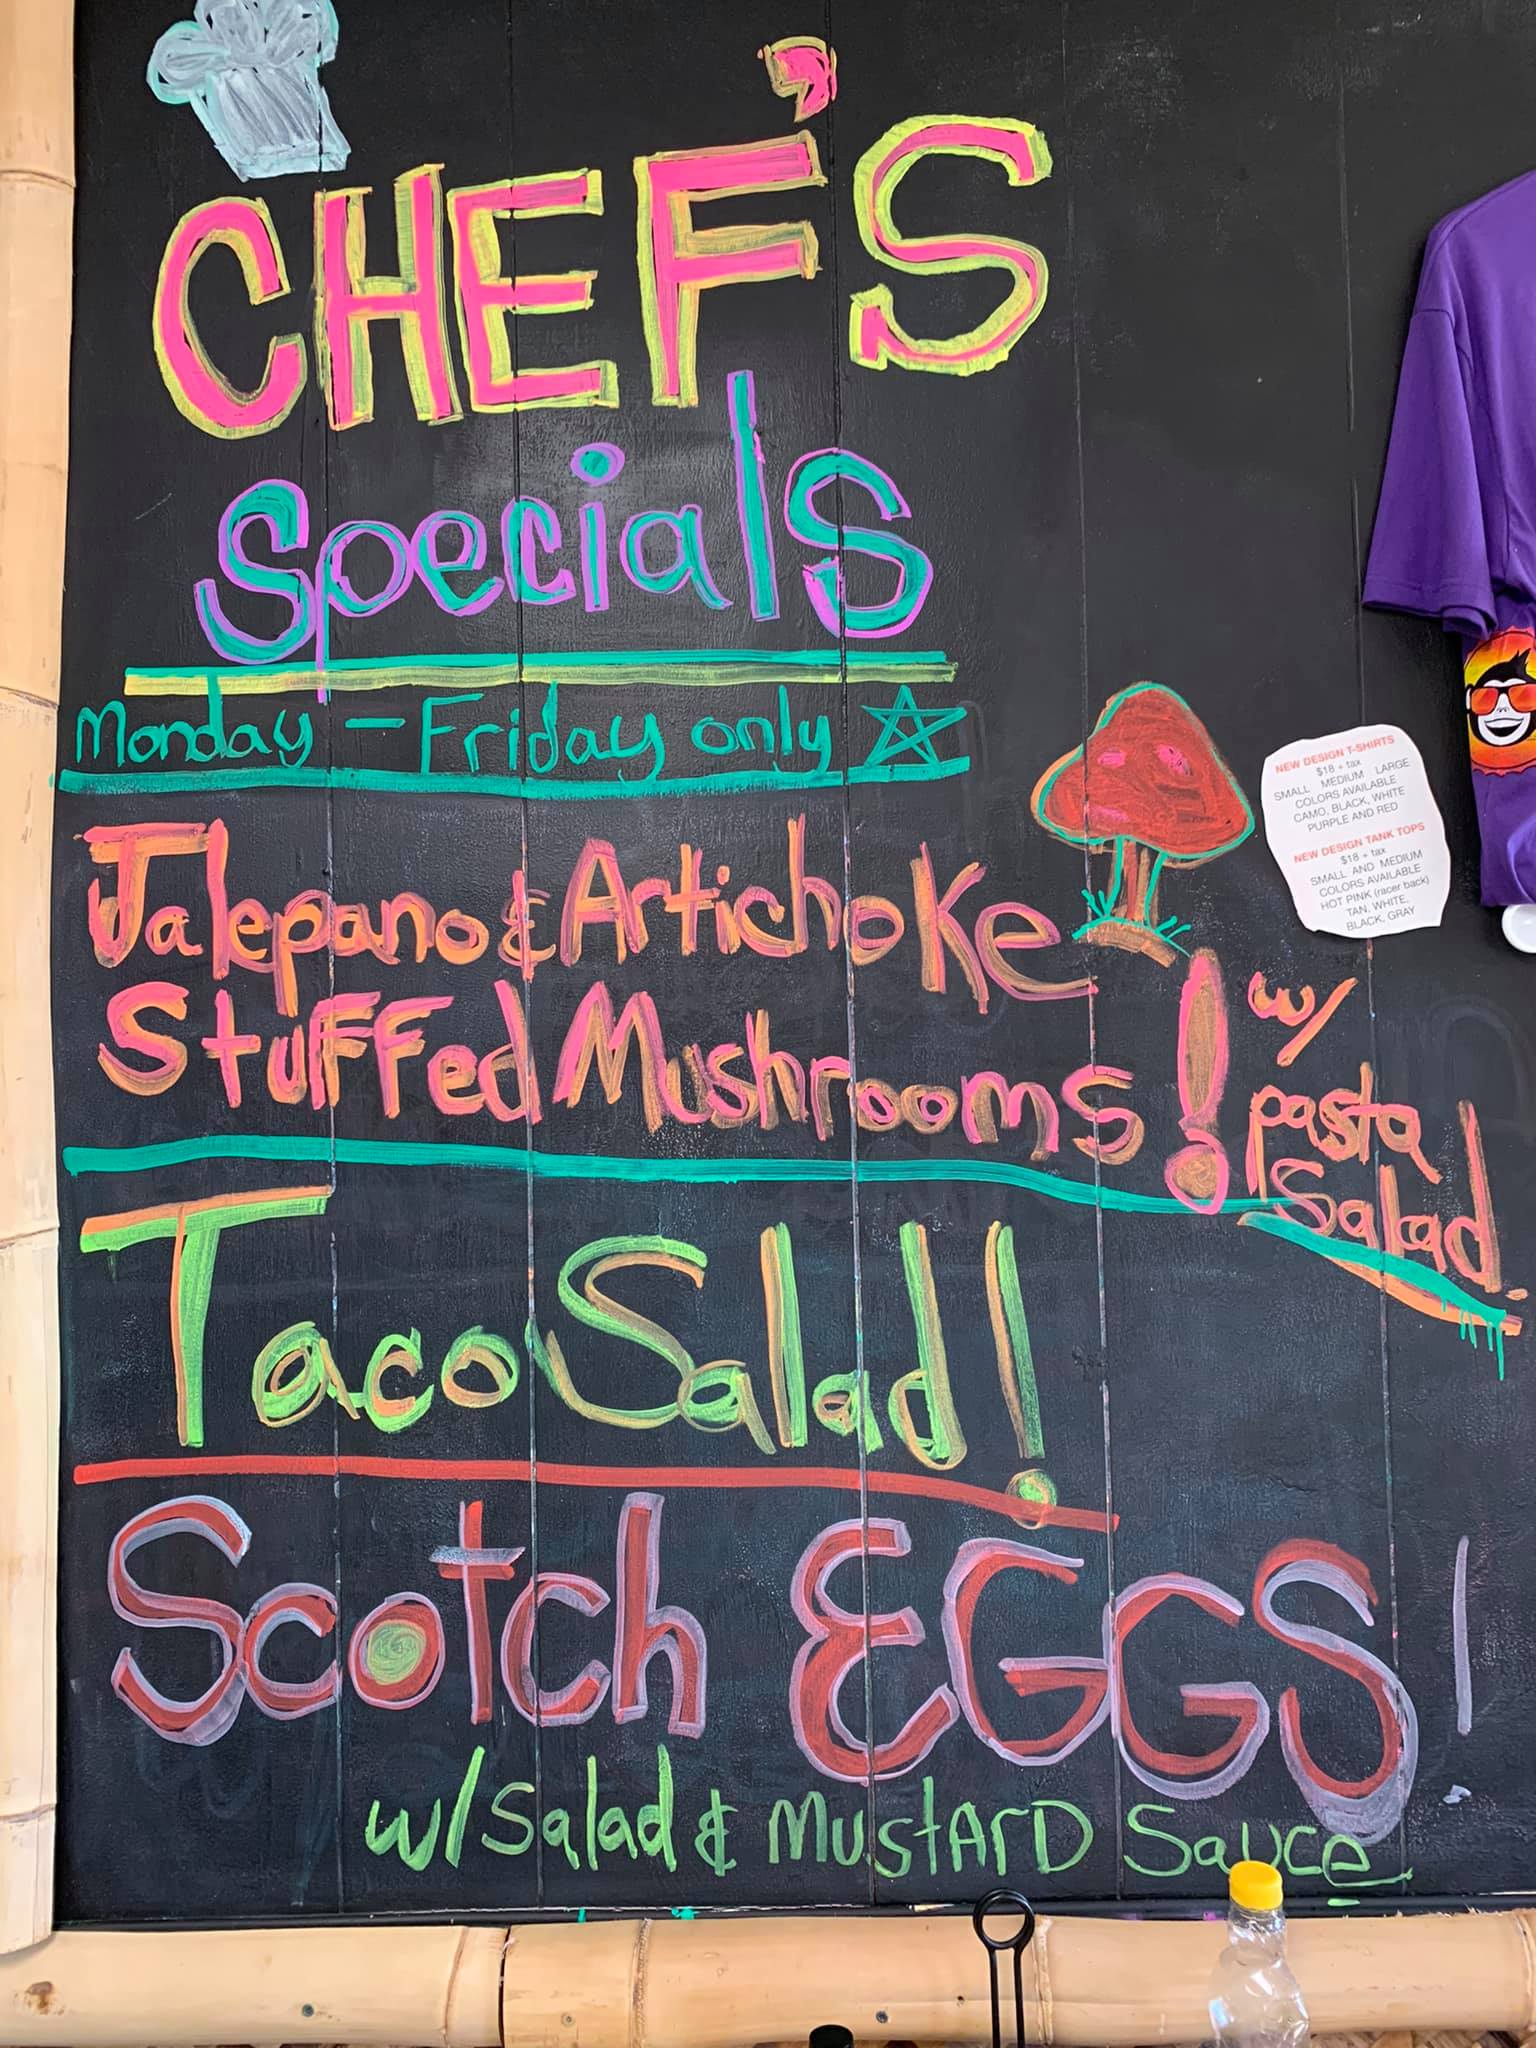 CHEF'S
specials
Monday - Friday only
Jalepano & Artichoke
Stuffed Mushrooms!
w/
pasta
Salad.
Taco Salad!
Scotch EGGS!
w/ Salad & Mustard Sauce
NEW DESIGN T-SHIRTS
$18 + tax
SMALL MEDIUM LARGE
COLORS AVAILABLE
CAMO, BLACK, WHITE
PURPLE AND RED
NEW DESIGN TANK TOPS
$18 + tax
SMALL AND MEDIUM
COLORS AVAILABLE
HOT PINK (racer back)
TAN, WHITE,
BLACK, GRAY